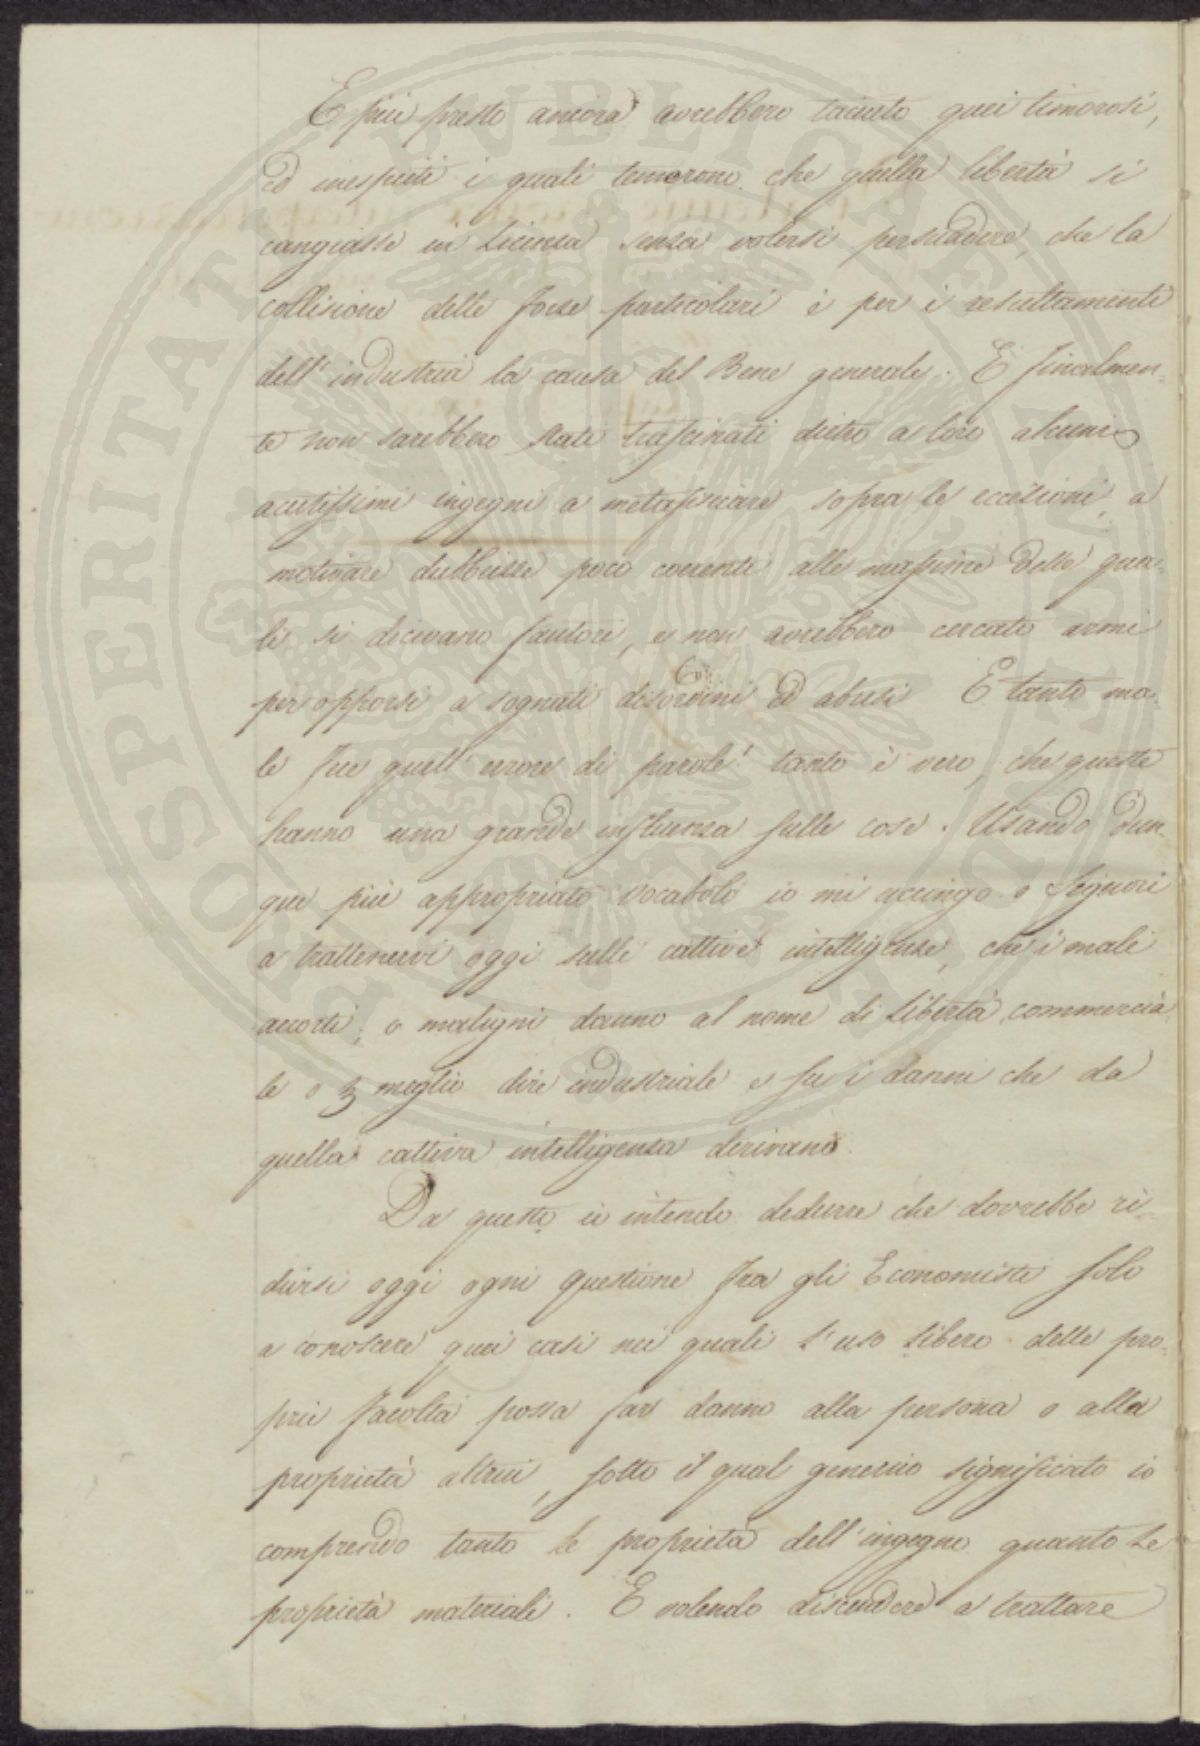 E più presto ancora avrebbero taciuto quei timorosi,
ed inesperti i quali temerono che quella libertà si
cangiasse in Licenza senza volersi persuadere, che la
collisione delle forze particolari è per i resultamenti
dell'industria la causa del Bene generale. E finalmen-
te non sarebbero stati trascinati dietro a loro alcuni
acutissimi ingegni a metafisicare sopra le eccezioni, a
motivare dubbiezze poco coerenti alle massime delle qua-
li si dicevano fautori, e non avrebbero cercate armi
per opporsi a sognati disordini ed abusi E tanto ma-
le fece quell'errore di parole! tanto è vero, che queste
hanno una grande influenza sulle cose. Usando dun-
que più appropriato vocabolo io mi accingo o Signori
a trattenervi oggi sulle cattive intelligenze, che i male
accorti, o maligni danno al nome di Libertà commercia-
le o meglio dire industriale e su i danni che da
quella cattiva intelligenza derivano.
Da questo io intendo dedurre che dovrebbe ri-
dursi oggi ogni questione fra gli Economisti solo
a conoscere quei casi nei quali l'uso libero delle pro-
prie facoltà possa far danno alla persona o alla
proprietà altrui, sotto il qual generico significato io
comprendo tanto le proprietà dell'ingegno quanto le
proprietà materiali. E volendo discendere a trattare
PROSPERITATI PUBLICAE AUGENDAE